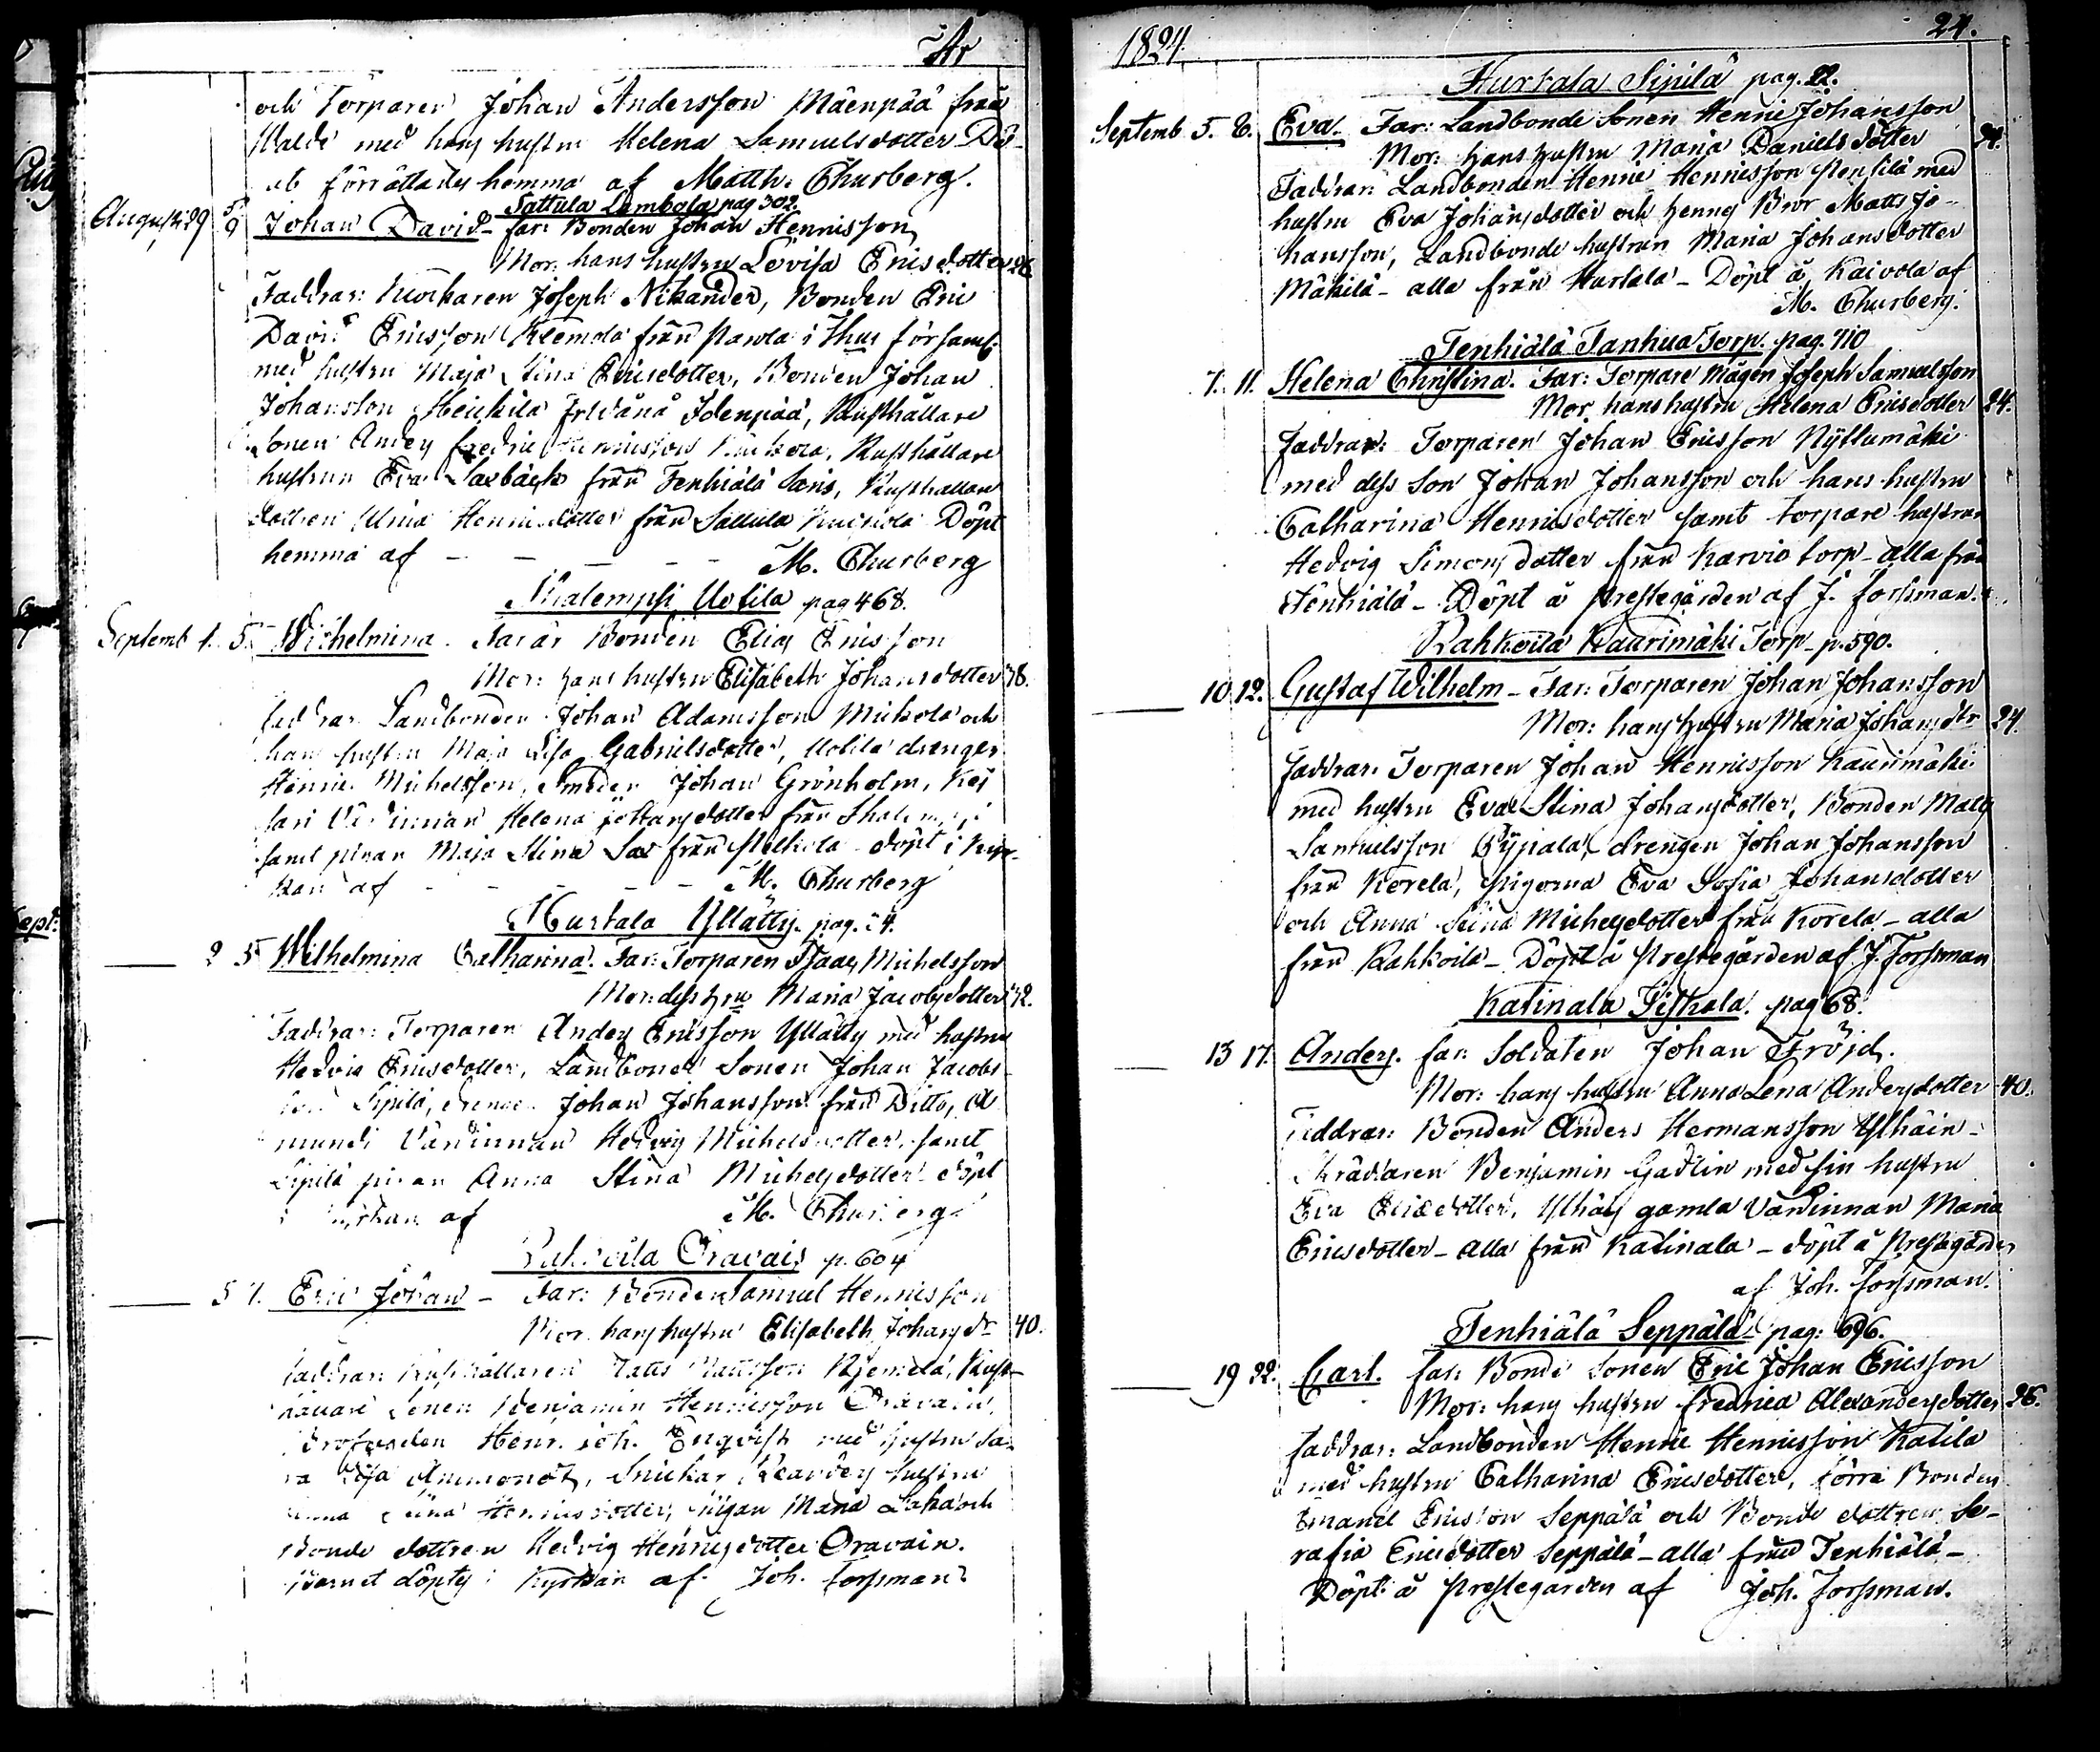 År
och Torparen Johan Andersson Mäenpää från
Walde med hans hustru Helena Samuelsdotter Dö-
ab förrättades hemma af Matth: Churberg.
Sattula Lambola pag 302.
August 29 5/9 Johan David - far: Bonden Johan Henricsson
Mor: hans hustru Lovisa Ericsdotter 26
Faddrar: Kyrkaren Joseph Nikander, Bonden Eric
David Ericsson Klemola från Parola i Thus församl:
med hustru Maja Stina Ericsdotter, Bonden Johan
Johansson Heickilä Idenpää, Rusthållare
Sonen Anders Fredric Henricsson Rusthållare
hustrun Eva Saxbäck från Tenhiälä Sans, Rusthållare
dottren Ulrica Henricsdotter från Sattula Döpt
hemma af - - - - - M. Churberg
Uotila pag 468.
Septemb 1. 5. Wilhelmina. Far är Bonden Elias Ericsson
Mor: hans hustru Elisabeth Johansdotter 38.
Faddrar Landbonden Johan Adamsson Mickola och
hans hustru Maja Lisa Gabrielsdotter, Uotila drengen
Henric Michelsson, Smeden Johan Grönholm, Kei
sari Värdinnan Helena Johansdotter från
samt pigan Maja Stina Sax från döpt i Kyr-
kan af - - - - - M. Churberg
Hurtala Yllätty. pag. 24.
2 5 Wilhelmina Catharina. Far: Torparen Isaac Michelsson
Mor: dess hru Maria Jacobsdotter 32.
Faddrar: Torparen Anders Ericsson Yllätty med hustru
Hedvig Ericsdotter, Landbonde Sonen Johan Jacobs
son Sipilä, drengen Johan Johansson från Ditto, A
mundi Värdinnan Hedvig Michelsdotter, samt
Sipilä pigan Anna Stina Michelsdotter döpt
i Kyrkan af M. Churberg
Rahkoila Oravais p. 604
5 7. Eric Johan - Far: Bonden Samuel Henricsson
Mor. hans hustru Elisabeth Johansdr 40.
Faddrar: Rusthållaren Matts Mattsson Njemelä, Rust-
hållare Sonen Benjamin Henricsson Oravain,
Henr. Joh. Enqvist med hustru Sa-
ra Lisa Ammondt, Snickar hustru
Anna Stina Henricsdotter, pigan Maria Laka och
Bonde dottren Hedvig Henricsdotter Oravain.
Barnet döptes i Kyrkan af Joh. Forssman
1824. 24.
Hurtala Sipilä pag. 22.
Septemb 5. 8. Eva. Far: Landbonde Sonen Henric Johansson
Mor: hans hustru Maria Danielsdotter 24.
Faddrar: Landbonden Henric Henricsson Pensilä med
hustru Eva Johansdotter och hennes Bror Matts Jo-
hansson, Landbonde hustrun Maria Johansdotter
Mäkilä - alla från Hurtala - Döpt å Kaivola af
M. Churberg.
Tenhiälä Tanhua Torp. pag. 710
7. 11. Helena Christina. Far: Torpare Mågen Joseph Samuelsson
Mor hans hustru Helena Ericsdotter 24.
Faddrar: Torparen Johan Ericsson Nyttumäki
med dess Son Johan Johansson och hans hustru
Catharina Henricsdotter samt torpare hustrun
Hedvig Simonsdotter från Karvio torp - alla från
Tenhiälä - Döpt å Prestegården af J. Forssman.
Rahkoila Kaurimäki Torp - p. 590.
10 12. Gustaf Wilhelm - Far: Torparen Johan Johansson
Mor: hans hustru Maria Johansdtr 24.
Faddrar: Torparen Johan Henricsson Kaurimäki
med hustru Eva Stina Johansdotter, Bonden Matts
Samuelsson Pyijala, drengen Johan Johansson
från Korela, pigorna Eva Sofia Johansdotter
och Anna Stina Michelsdotter från Korela - alla
från Rahkoila - Döpt å Prestegården af J. Forssman
Katinala Fiskola. pag 68.
13 17. Anders. far: Soldaten Johan Fröjd.
Mor: hans hustru Anna Lena Andersdotter 40.
Faddrar: Bonden Anders Hermansson Ylhäin-
Skräddaren Benjamin Gadlin med sin hustru
Eva Ericsdotter, Ylhäis gamla Värdinnan Maria
Ericsdotter - alla från Katinala - döpt å Prestegården
af Joh. Forssman.
Tenhiälä Seppälä - pag: 696.
19 22. Carl. far: Bonde Sonen Eric Johan Ericsson
Mor: hans hustru Fredrica Alexandersdotter 26.
Faddrar: Landbonden Henric Henricsson Katila
med hustru Catharina Ericsdotter, förra Bonden
Emanel Ericsson Seppälä och Bonde dottren Se-
rafia Ericsdotter Seppälä - alla från Tenhiälä -
Döpt å Prestegården af Joh. Forssman.